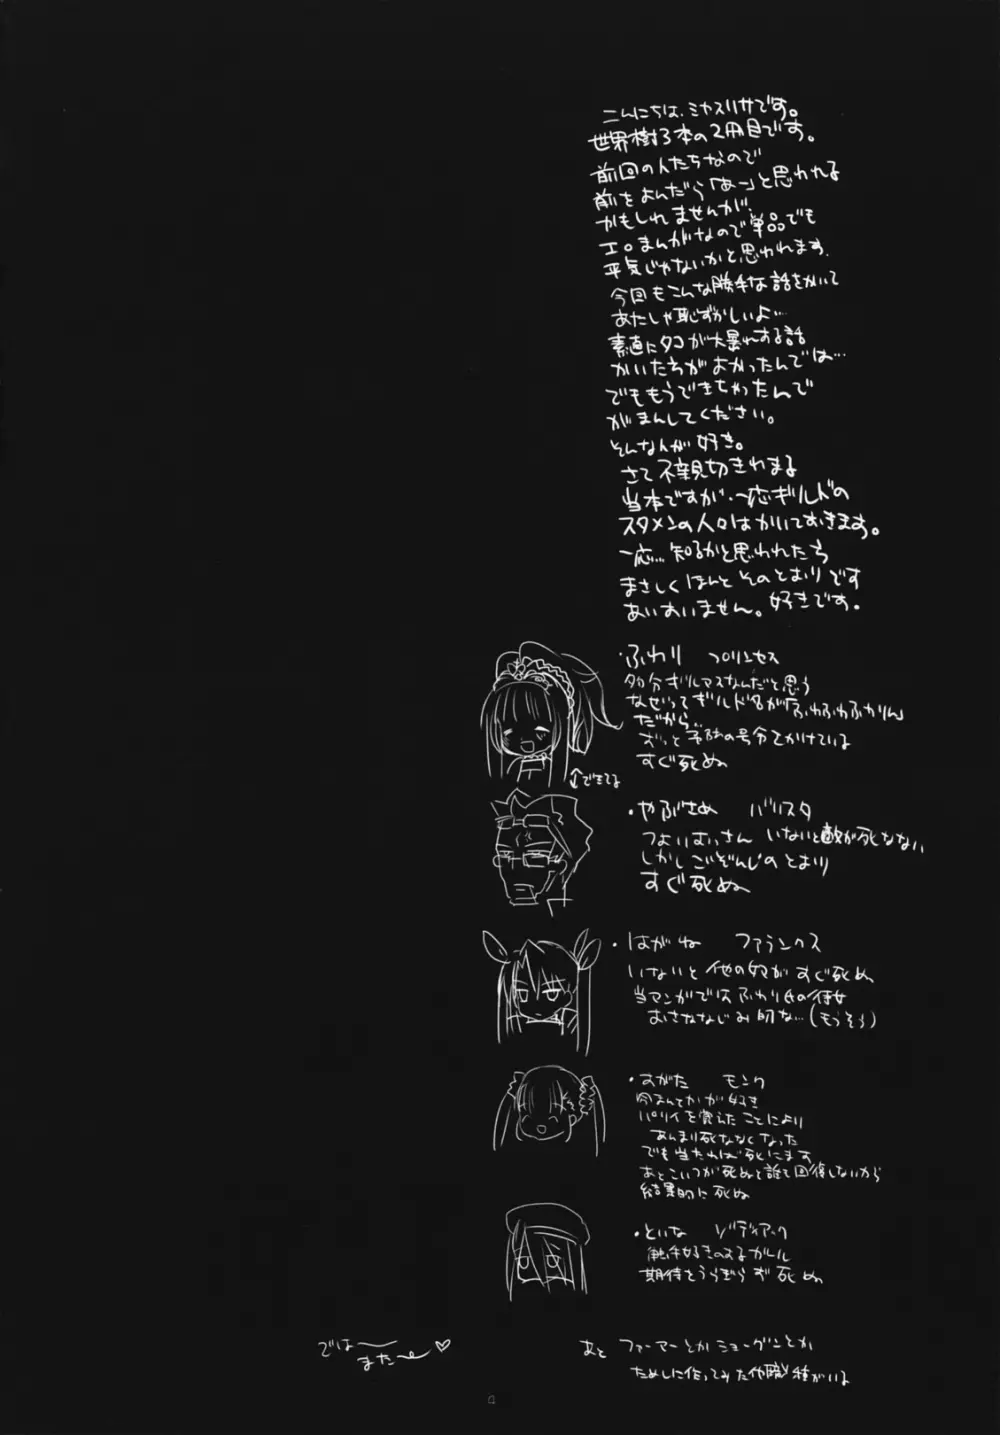 こんにちは、ミヤスリサです。
世界樹3本の2冊目です。
前回の人たちなので
前をよんだら「あー」と思われる
かもしれませんが、
エロまんがなので単品でも
平気じゃないかと思われます。
今回もこんな勝手な話をかいて
あたしゃ恥ずかしいよ…
素直にタコが大暴れする話
かいたらがよかったんでは…
でももうできちゃったんで
がまんしてください。
そんな人が好き。
さて不親切きわまる
当本ですが、一応ギルドの
スタメンの人々はかいておきます。
一応…知るかと思われたら
まさしくほんとそのとおりです
あいすいません。好きです。
・ふわり プリンセス
多分ギルマスなんだと思う
なぜってギルド名が「ふわふわふかりん」
だから…
ずっと予防の号令をかけている
すぐ死ぬ
↓できてる
・やぶさめ バリスタ
つよいむいさん いないと敵が死なない
しかしごぞんじのとおり
すぐ死ぬ
・はがね ファランクス
いないと他の奴がすぐ死ぬ
当マンガではふわり氏の彼女
おさななじみ的な…(もうそう)
・すがた モンク
今まんてかが好き
パリイを覚えたことにより
あんまり死ななくなった
でも当たれば死にます
あとこいつが死ぬと誰も回復しないから
結果的に死ぬ
・といな ゾディアック
触手好きのメガール
期待をうらぎらず死ぬ
あと ファーマーとかショーグンとか
ためしに作ってみた他職種がいる
では〜
また〜♡